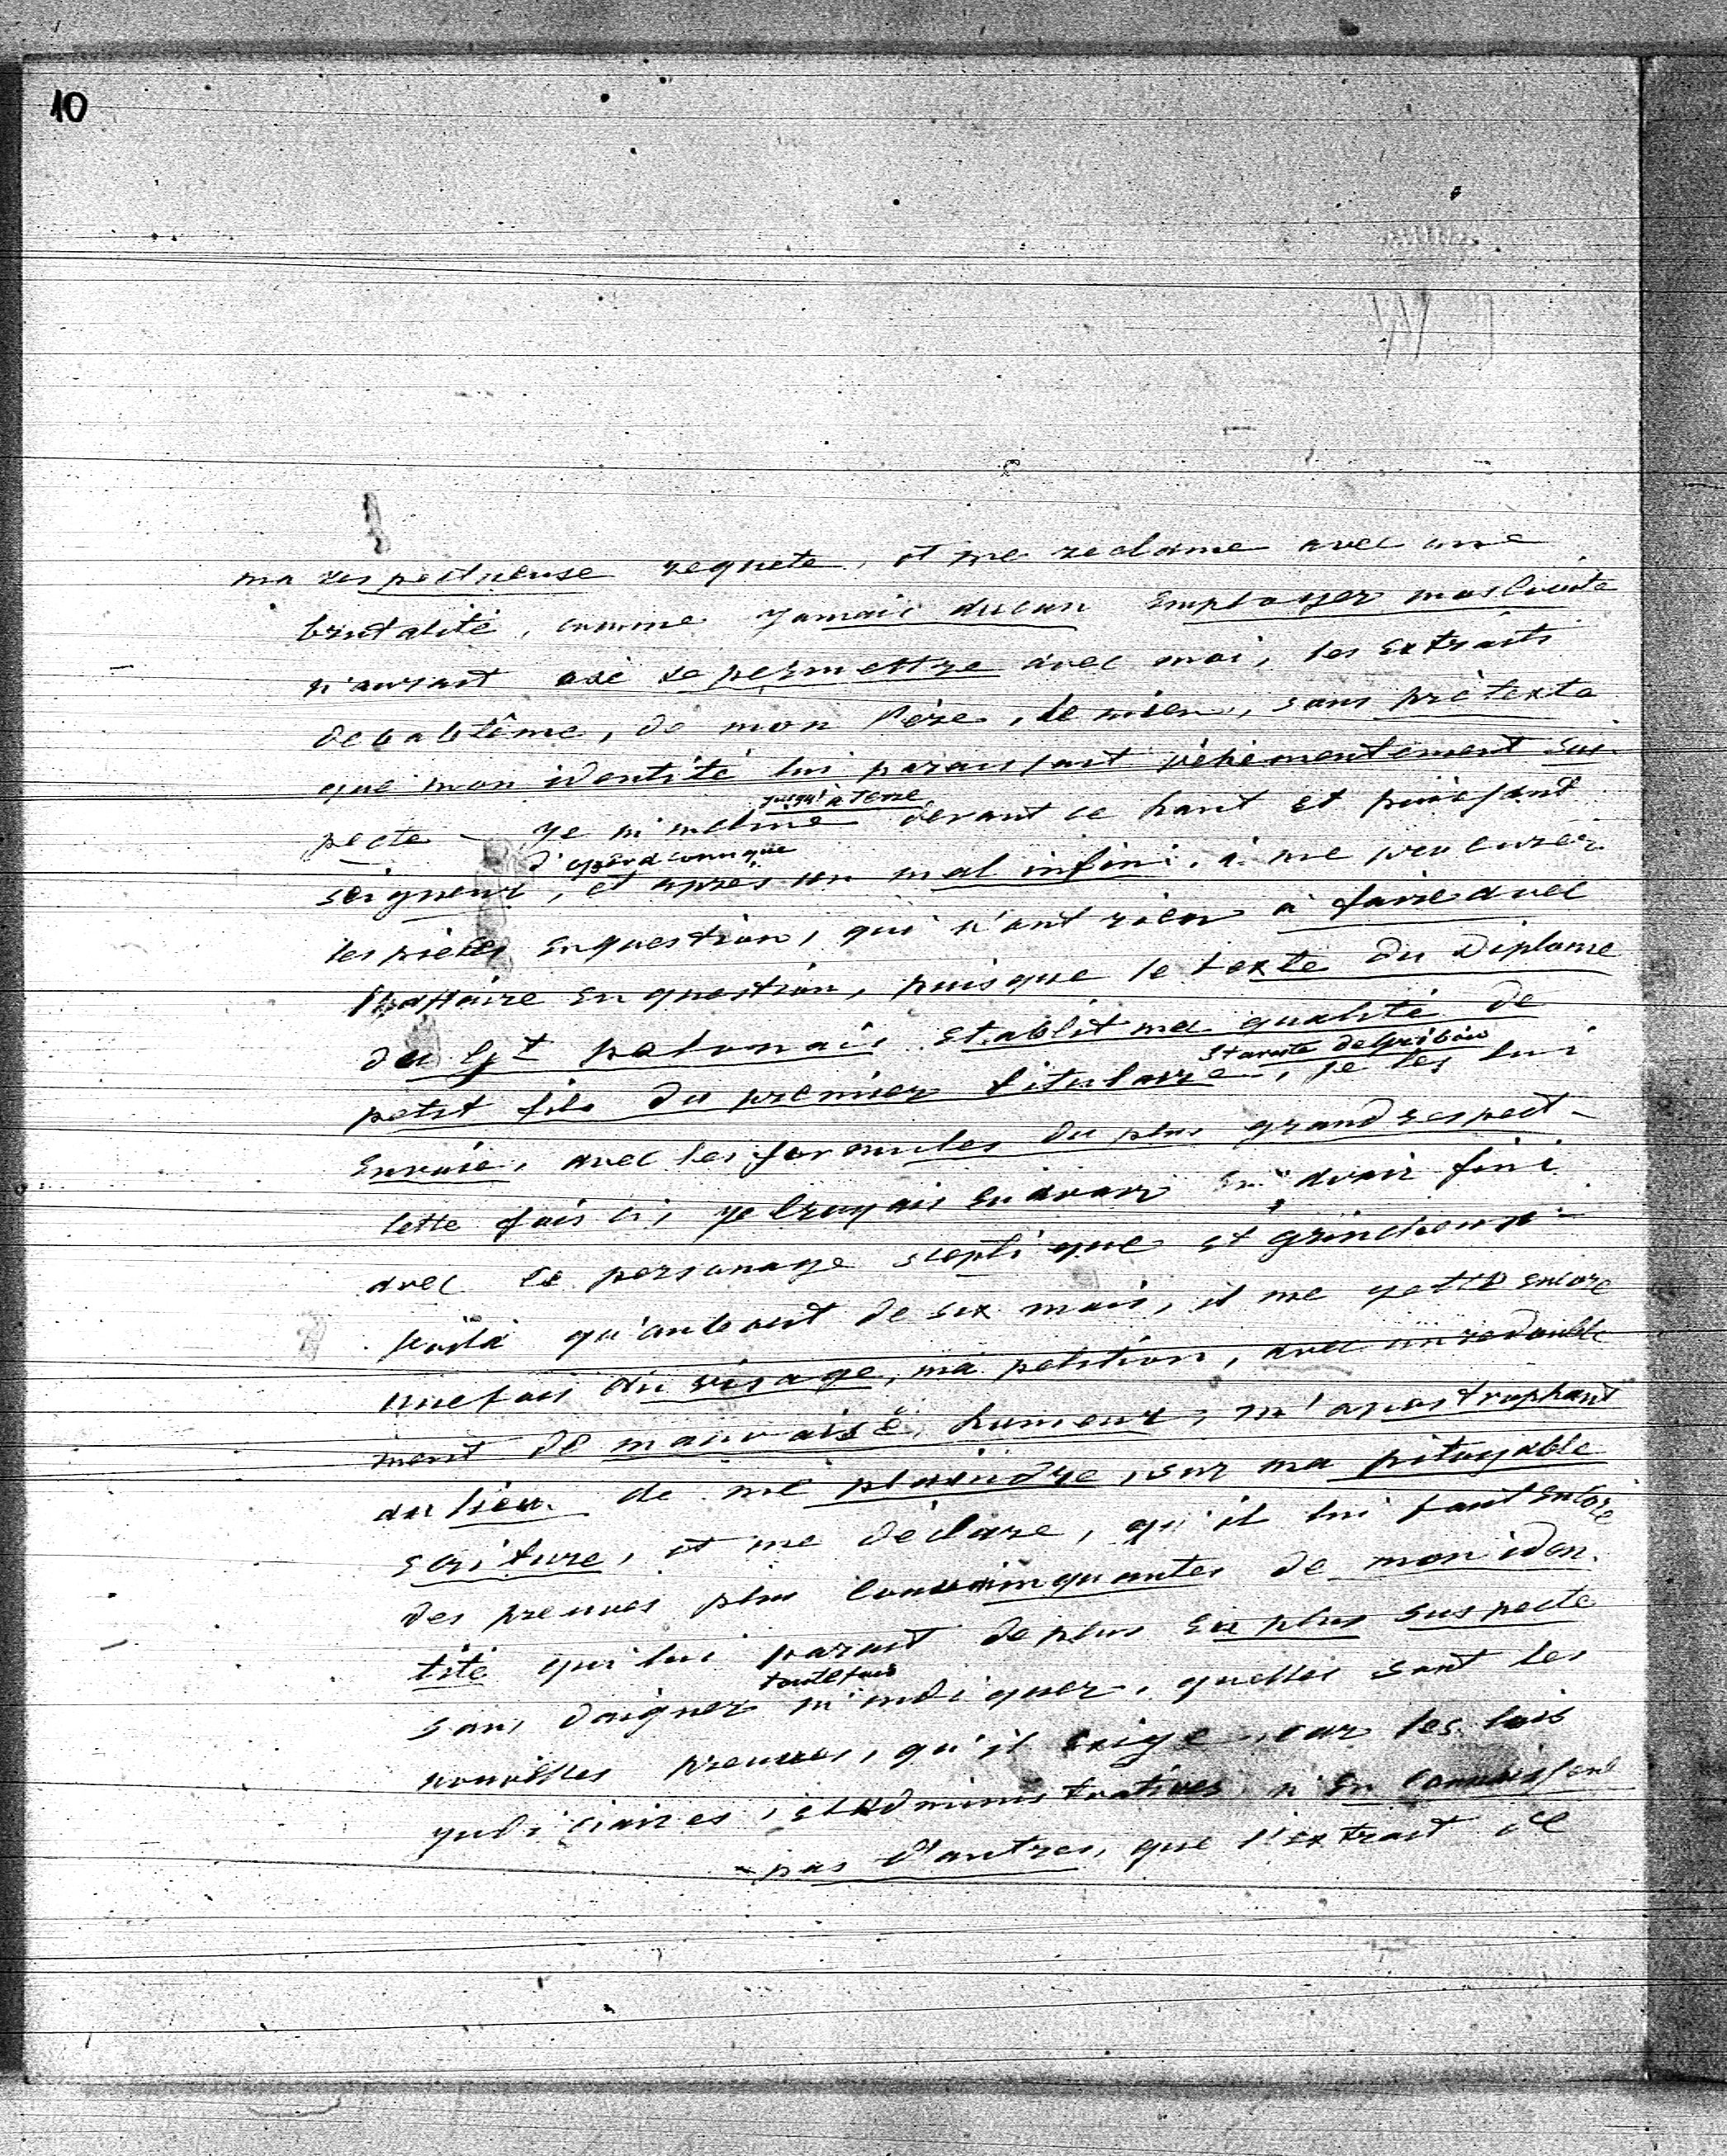 10
ma respectueuse requete, et me reclame avec une
brutalité, comme jamais aucun employer moscovite
n'aurait osé se permettre avec moi, les extraits
de babtême, de mon Père, le mien, sous prétexte
que mon identité lui paraissait véhémentement sus-
pecte – je m'incline jusqu'à terre devant ce haut et puissant
seigneur, d'opera comique et après un mal infini, à me procurer
les pièces en question, qui n'ont rien à faire avec
l'affaire en question, puisque le texte du Diplome
du Gt polonais etablit ma qualité de
petit fils du premier titulaire, Staroste de je les lui
envoie, avec les formules du plus grand respect –
cette fois ci, je croyais en avoir fini
avec ce personage sceptique et grincheux –
voilà qu'au bout de six mois, il me jette encore
une fois au visage, ma petition, avec un redouble
ment de mauvaise humeur, m'apostrophant
au lieu de me plaindre, sur ma pitoyable
ecriture, et me déclare, qu'il lui faut encore
des preuves plus convainquantes de mon iden-
tité qui lui parait de plus en plus suspecte
sans daigner toutefois m'indiquer, quelles sont les
nouvelles preuves, qu'il exige, car les lois
judiciaires, et administratives n'en connaissent
pas d'autres, que l'extrait de